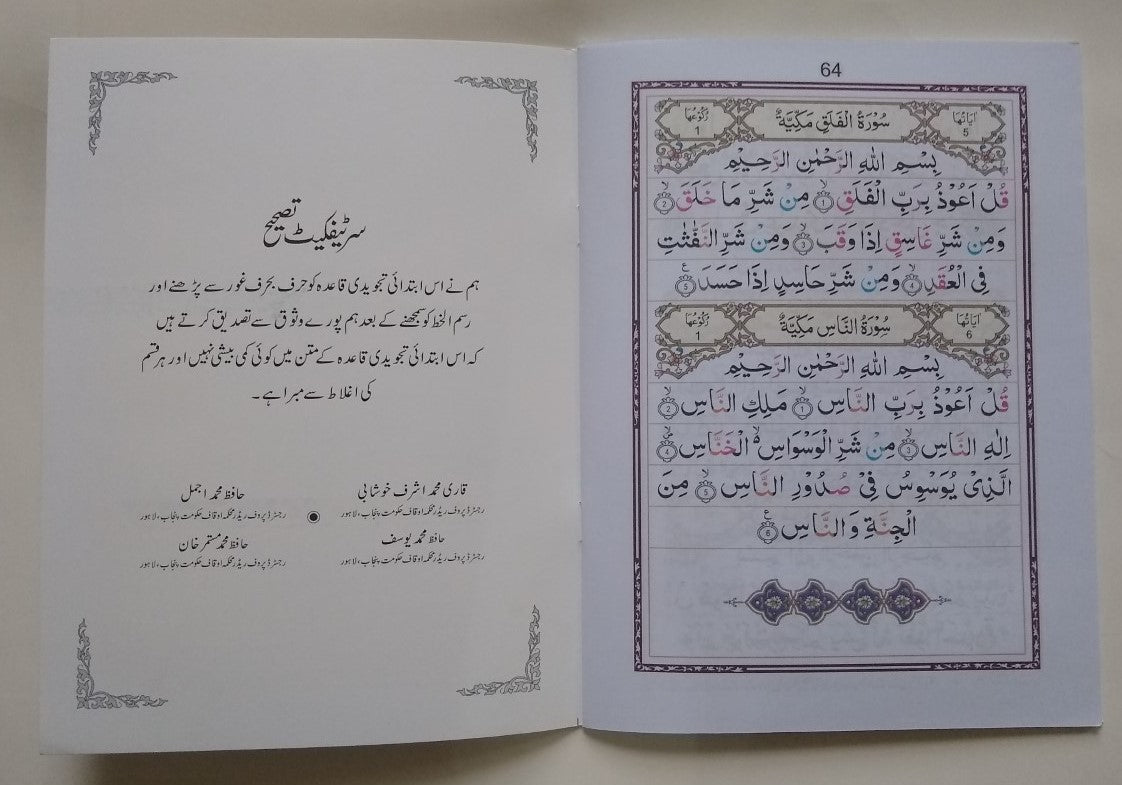 64
سُوْرَةُ الْفَلَقِ مَكِّيَّةٌ
اٰيَاتُهَا 5
رُكُوْعُهَا 1
بِسْمِ اللّٰهِ الرَّحْمٰنِ الرَّحِيْمِ
قُلْ اَعُوْذُ بِرَبِّ الْفَلَقِ ۙ﴿1﴾ مِنْ شَرِّ مَا خَلَقَ ۙ﴿2﴾
وَمِنْ شَرِّ غَاسِقٍ اِذَا وَقَبَ ۙ﴿3﴾ وَمِنْ شَرِّ النَّفّٰثٰتِ
فِي الْعُقَدِ ۙ﴿4﴾ وَمِنْ شَرِّ حَاسِدٍ اِذَا حَسَدَ ﴿5﴾ ع
سُوْرَةُ النَّاسِ مَكِّيَّةٌ
اٰيَاتُهَا 6
رُكُوْعُهَا 1
بِسْمِ اللّٰهِ الرَّحْمٰنِ الرَّحِيْمِ
قُلْ اَعُوْذُ بِرَبِّ النَّاسِ ۙ﴿1﴾ مَلِكِ النَّاسِ ۙ﴿2﴾
اِلٰهِ النَّاسِ ۙ﴿3﴾ مِنْ شَرِّ الْوَسْوَاسِ ۙ الْخَنَّاسِ ﴿4﴾
الَّذِيْ يُوَسْوِسُ فِيْ صُدُوْرِ النَّاسِ ۙ﴿5﴾ مِنَ
الْجِنَّةِ وَالنَّاسِ ﴿6﴾ ع
سرٹیفکیٹ تصحیح
ہم نے اس ابتدائی تجویدی قاعدہ کو حرف بحرف غور سے پڑھنے اور
رسم الخط کو سمجھنے کے بعد ہم پورے وثوق سے تصدیق کرتے ہیں
کہ اس ابتدائی تجویدی قاعدہ کے متن میں کوئی کمی بیشی نہیں اور ہر قسم
کی اغلاط سے مبرا ہے۔
قاری محمد اشرف خوشابی
رجسٹرڈ پروف ریڈر محکمہ اوقاف حکومت پنجاب، لاہور
حافظ محمد اجمل
رجسٹرڈ پروف ریڈر محکمہ اوقاف حکومت پنجاب، لاہور
حافظ محمد یوسف
رجسٹرڈ پروف ریڈر محکمہ اوقاف حکومت پنجاب، لاہور
حافظ محمد مستمر خان
رجسٹرڈ پروف ریڈر محکمہ اوقاف حکومت پنجاب، لاہور